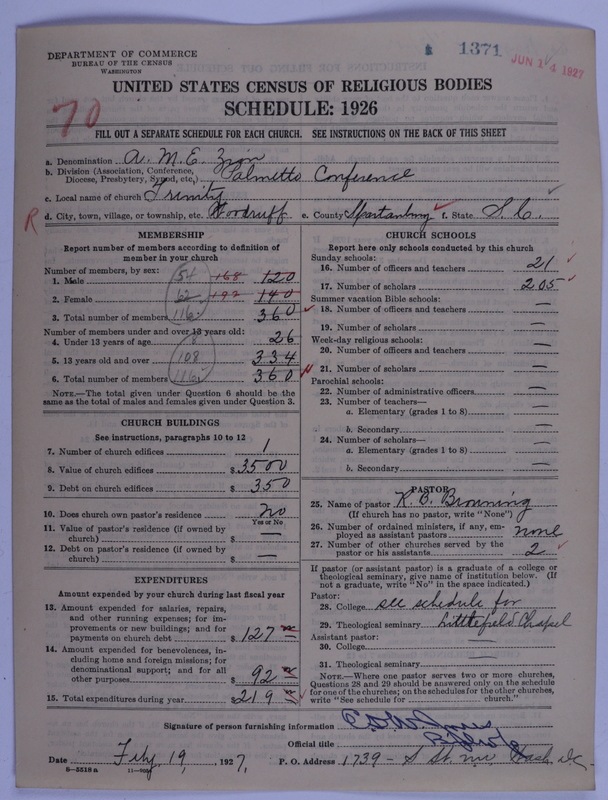 DEPARTMENT OF COMMERCE
BUREAU OF THE CENSUS
WASHINGTON
$ 1371
JUN 14 1927
UNITED STATES CENSUS OF RELIGIOUS BODIES
SCHEDULE: 1926
70
FILL OUT A SEPARATE SCHEDULE FOR EACH CHURCH. SEE INSTRUCTIONS ON THE BACK OF THIS SHEET
a. Denomination A. M. E. Zion
b. Division (Association, Conference, Diocese, Presbytery, Synod, etc.) Palmetto Conference
c. Local name of church Trinity
R d. City, town, village, or township, etc. Woodruff e. County Spartanburg f. State S. C.
MEMBERSHIP
Report number of members according to definition of
member in your church
Number of members, by sex:
1. Male 54 168 120
2. Female 62 192 140
3. Total number of members 116 360
Number of members under and over 13 years old:
4. Under 13 years of age 8 26
5. 13 years old and over 108 334
6. Total number of members 116 360
NOTE.—The total given under Question 6 should be the
same as the total of males and females given under Question 3.
CHURCH BUILDINGS
See instructions, paragraphs 10 to 12
7. Number of church edifices 1
8. Value of church edifices $ 3500
9. Debt on church edifices $ 350
10. Does church own pastor's residence no
Yes or No
11. Value of pastor's residence (if owned by
church) $ —
12. Debt on pastor's residence (if owned by
church) $ —
EXPENDITURES
Amount expended by your church during last fiscal year
13. Amount expended for salaries, repairs,
and other running expenses; for im-
provements or new buildings; and for
payments on church debt $ 127
14. Amount expended for benevolences, in-
cluding home and foreign missions; for
denominational support; and for all
other purposes $ 92
15. Total expenditures during year $ 219
CHURCH SCHOOLS
Report here only schools conducted by this church
Sunday schools:
16. Number of officers and teachers 21
17. Number of scholars 205
Summer vacation Bible schools:
18. Number of officers and teachers —
19. Number of scholars —
Week-day religious schools:
20. Number of officers and teachers —
21. Number of scholars —
Parochial schools:
22. Number of administrative officers —
23. Number of teachers—
a. Elementary (grades 1 to 8) —
b. Secondary —
24. Number of scholars—
a. Elementary (grades 1 to 8) —
b. Secondary —
PASTOR
25. Name of pastor K. B. Browning
(If church has no pastor, write "None")
26. Number of ordained ministers, if any, em-
ployed as assistant pastors none
27. Number of other churches served by the
pastor or his assistants 2
If pastor (or assistant pastor) is a graduate of a college or
theological seminary, give name of institution below. (If
not a graduate, write "No" in the space indicated.)
Pastor:
28. College see schedule for
29. Theological seminary Littlefield Chapel
Assistant pastor:
30. College —
31. Theological seminary —
NOTE.—Where one pastor serves two or more churches,
Questions 28 and 29 should be answered only on the schedule
for one of the churches; on the schedules for the other churches,
write "See schedule for church."
Signature of person furnishing information
Official title
Date 19, 1927, P. O. Address 1739 - S St. nw. Wash. D.C.
8-5518a